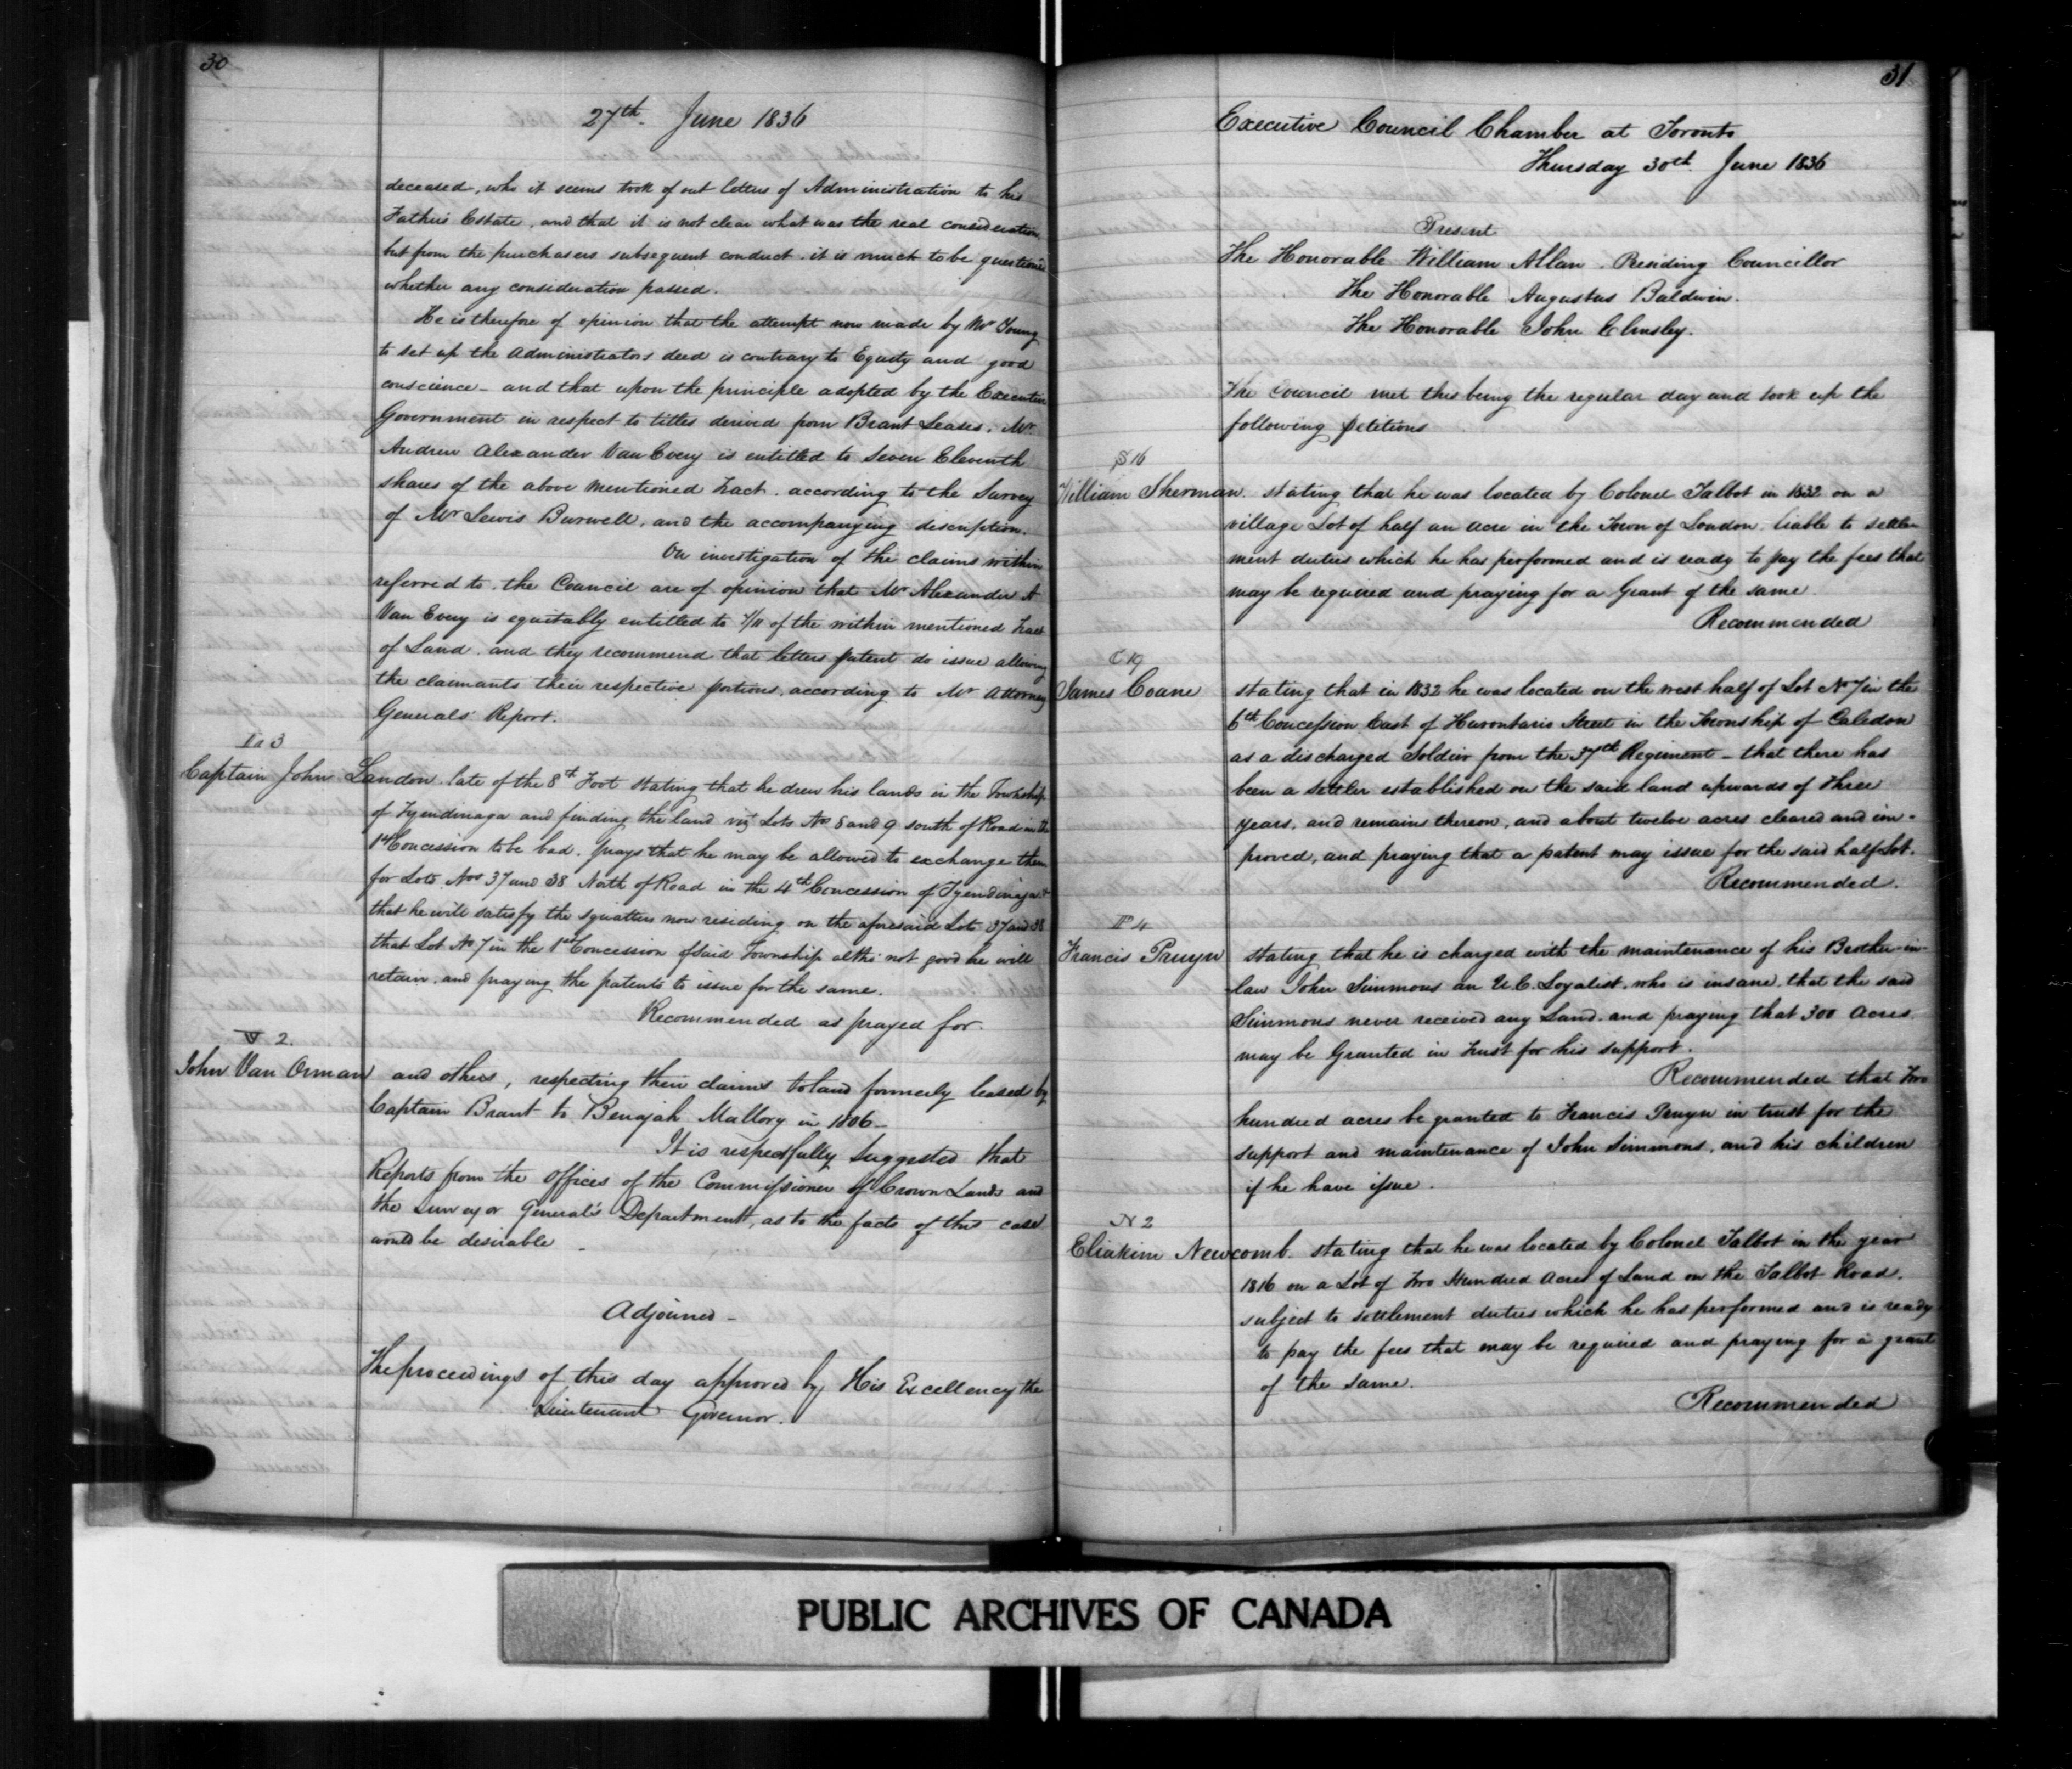 30
27th June 1836
deceased, who it seems took of out letters of Administration to his
Father's Estate, and that it is not clear what was the real consideration,
but from the purchasers subsequent conduct it is much to be questioned
whether any consideration passed.
He is therefore of opinion that the attempt now made by Mr Young
to set up the Administrators deed is contrary to Equity and good
conscience - and that upon the principle adopted by the Executive
Government in respect to titles derived from Brant Leases, Mr
Andrew Alexander Van Every is entitled to Seven Eleventh
shares of the above mentioned Tract according to the Survey
of Mr Lewis Burwell, and the accompanying description.
On investigation of the claims within
referred to, the Council are of opinion that Mr Alexander A
Van Every is equitably entitled to 7/11 of the within mentioned Tract
of Land and they recommend that letters patent do issue allowing
the claimants their respective portions, according to Mr Attorney
Generals Report.
La 3
Captain John Landon late of the 8th Foot stating that he drew his lands in the Township
of Tyendinaga and finding the land viz Lots Nos 8 and 9 south of Road in the
1st Concession to be bad. prays that he may be allowed to exchange them
for Lots Nos 37 and 38 North of Road in the 4th Concession of Tyendinaga &
that he will satisfy the squatters now residing on the aforesaid Lots 37 and 38
that Lot No 7 in the 1st Concession of said Township altho' not good he will
retain, and praying the patents to issue for the same.
Recommended as prayed for.
V 2.
John Van Orman and others, respecting their claims to land formerly leased by
Captain Brant to Benajah Mallory in 1806 -
It is respectfully suggested that
Reports from the Offices of the Commissioner of Crown Lands and
the Surveyor General's Department, as to the facts of this case
would be desirable -
Adjourned -
The proceedings of this day approved by His Excellency the
Lieutenant Governor.
31
Executive Council Chamber at Toronto
Thursday 30th June 1836
Present
The Honorable William Allan. Presiding Councillor
The Honorable Augustus Baldwin.
The Honorable John Elmsley.
The Council met this being the regular day and took up the
following petitions
S 16
William Sherman. stating that he was located by Colonel Talbot in 1832 on a
village Lot of half an acre in the Town of London liable to settle-
ment duties which he has performed and is ready to pay the fees that
may be required and praying for a Grant of the same.
Recommended
C 19
James Coane stating that in 1832 he was located on the west half of Lot No 7 in the
6th Concession East of Hurontario Street in the Township of Caledon
as a discharged Soldier from the 37th Regiment - that there has
been a settler established on the said land upwards of three
years, and remains thereon, and about twelve acres cleared and im-
proved, and praying that a patent may issue for the said half Lot.
Recommended.
P 4
Francis Pruyn stating that he is charged with the maintenance of his Brother-in-
law John Simmons an U.E. Loyalist, who is insane, that the said
Simmons never received any Land and praying that 300 acres
may be Granted in trust for his support.
Recommended that two
hundred acres be granted to Francis Pruyn in trust for the
support and maintenance of John Simmons, and his children
if he have issue.
N 2
Eliakim Newcomb. stating that he was located by Colonel Talbot in the year
1816 on a Lot of Two Hundred Acres of Land on the Talbot Road.
subject to settlement duties which he has performed and is ready
to pay the fees that may be required and praying for a grant
of the same.
Recommended
PUBLIC ARCHIVES OF CANADA